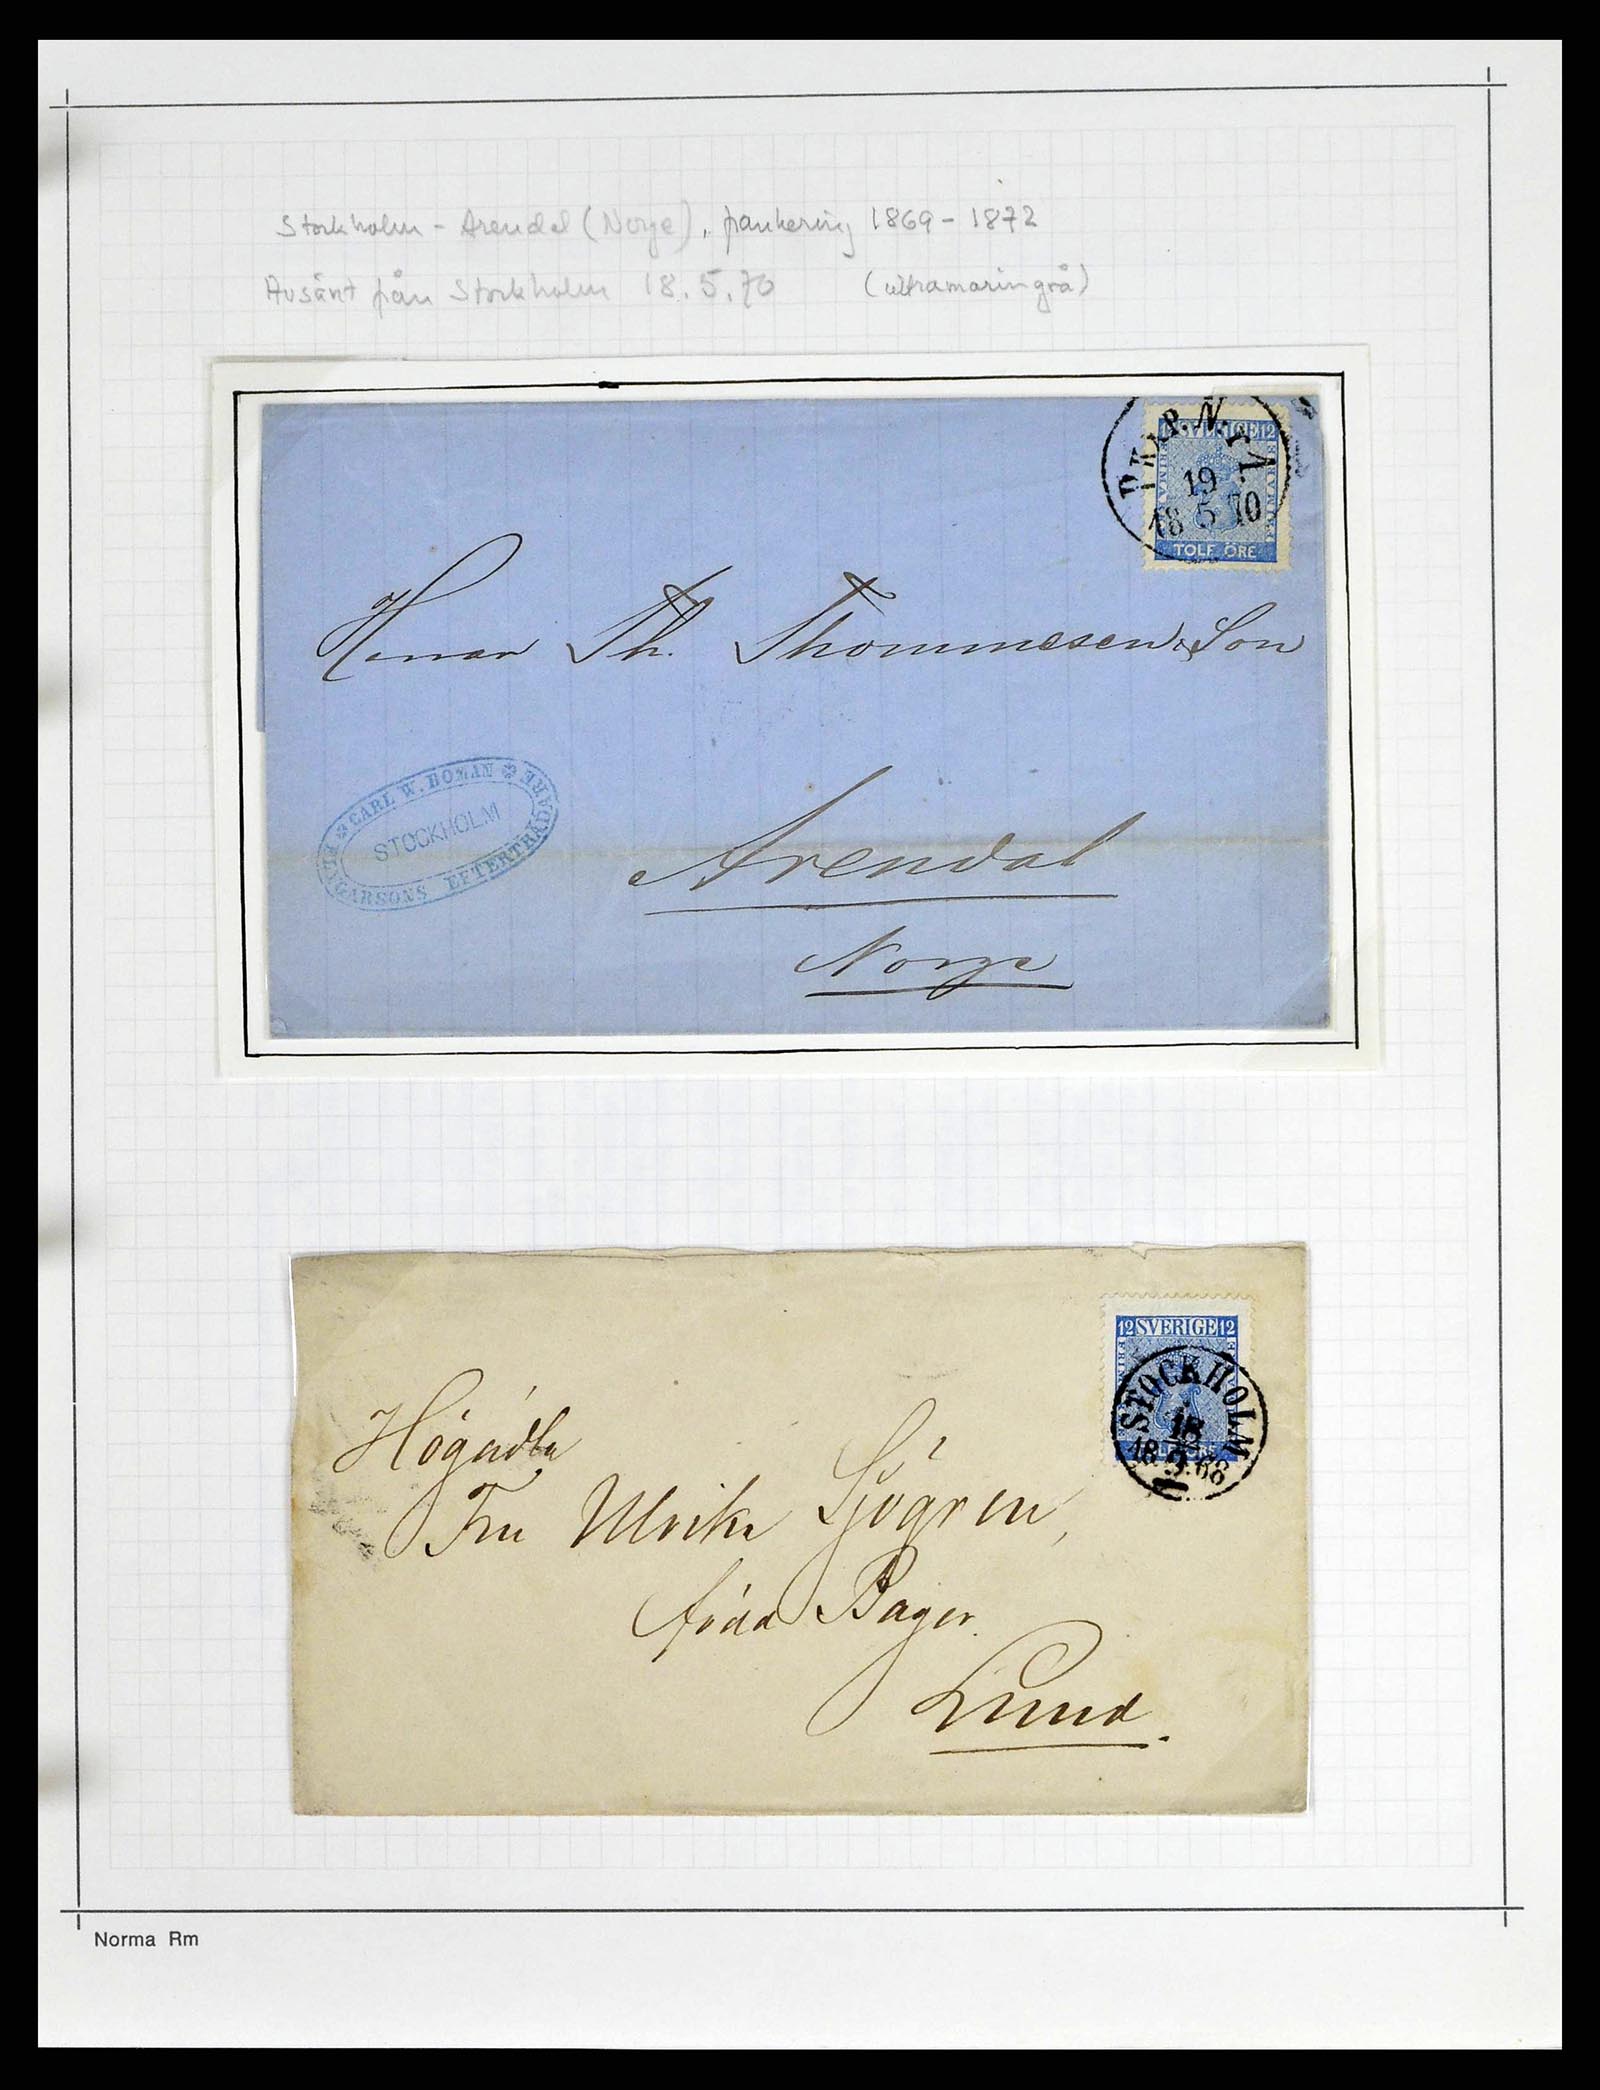 Stockholm - Arendal (Norge), frankering 1869 - 1872
Avsänt från Stockholm 18.5.70 (ultramaringrå)
PKXP. N.
19
5
18 70
12 SVERIGE 12
TOLF ÖRE
Herrar Th. Thommesen & Son
CARL W. BOMAN
STOCKHOLM
EFTERTRÄDARE
Arendal
Norge
12 SVERIGE 12
STOCKHOLM
18
18.9.68
Högädla
Fru Ulrika Sjögren,
född Bager.
Lund.
Norma Rm